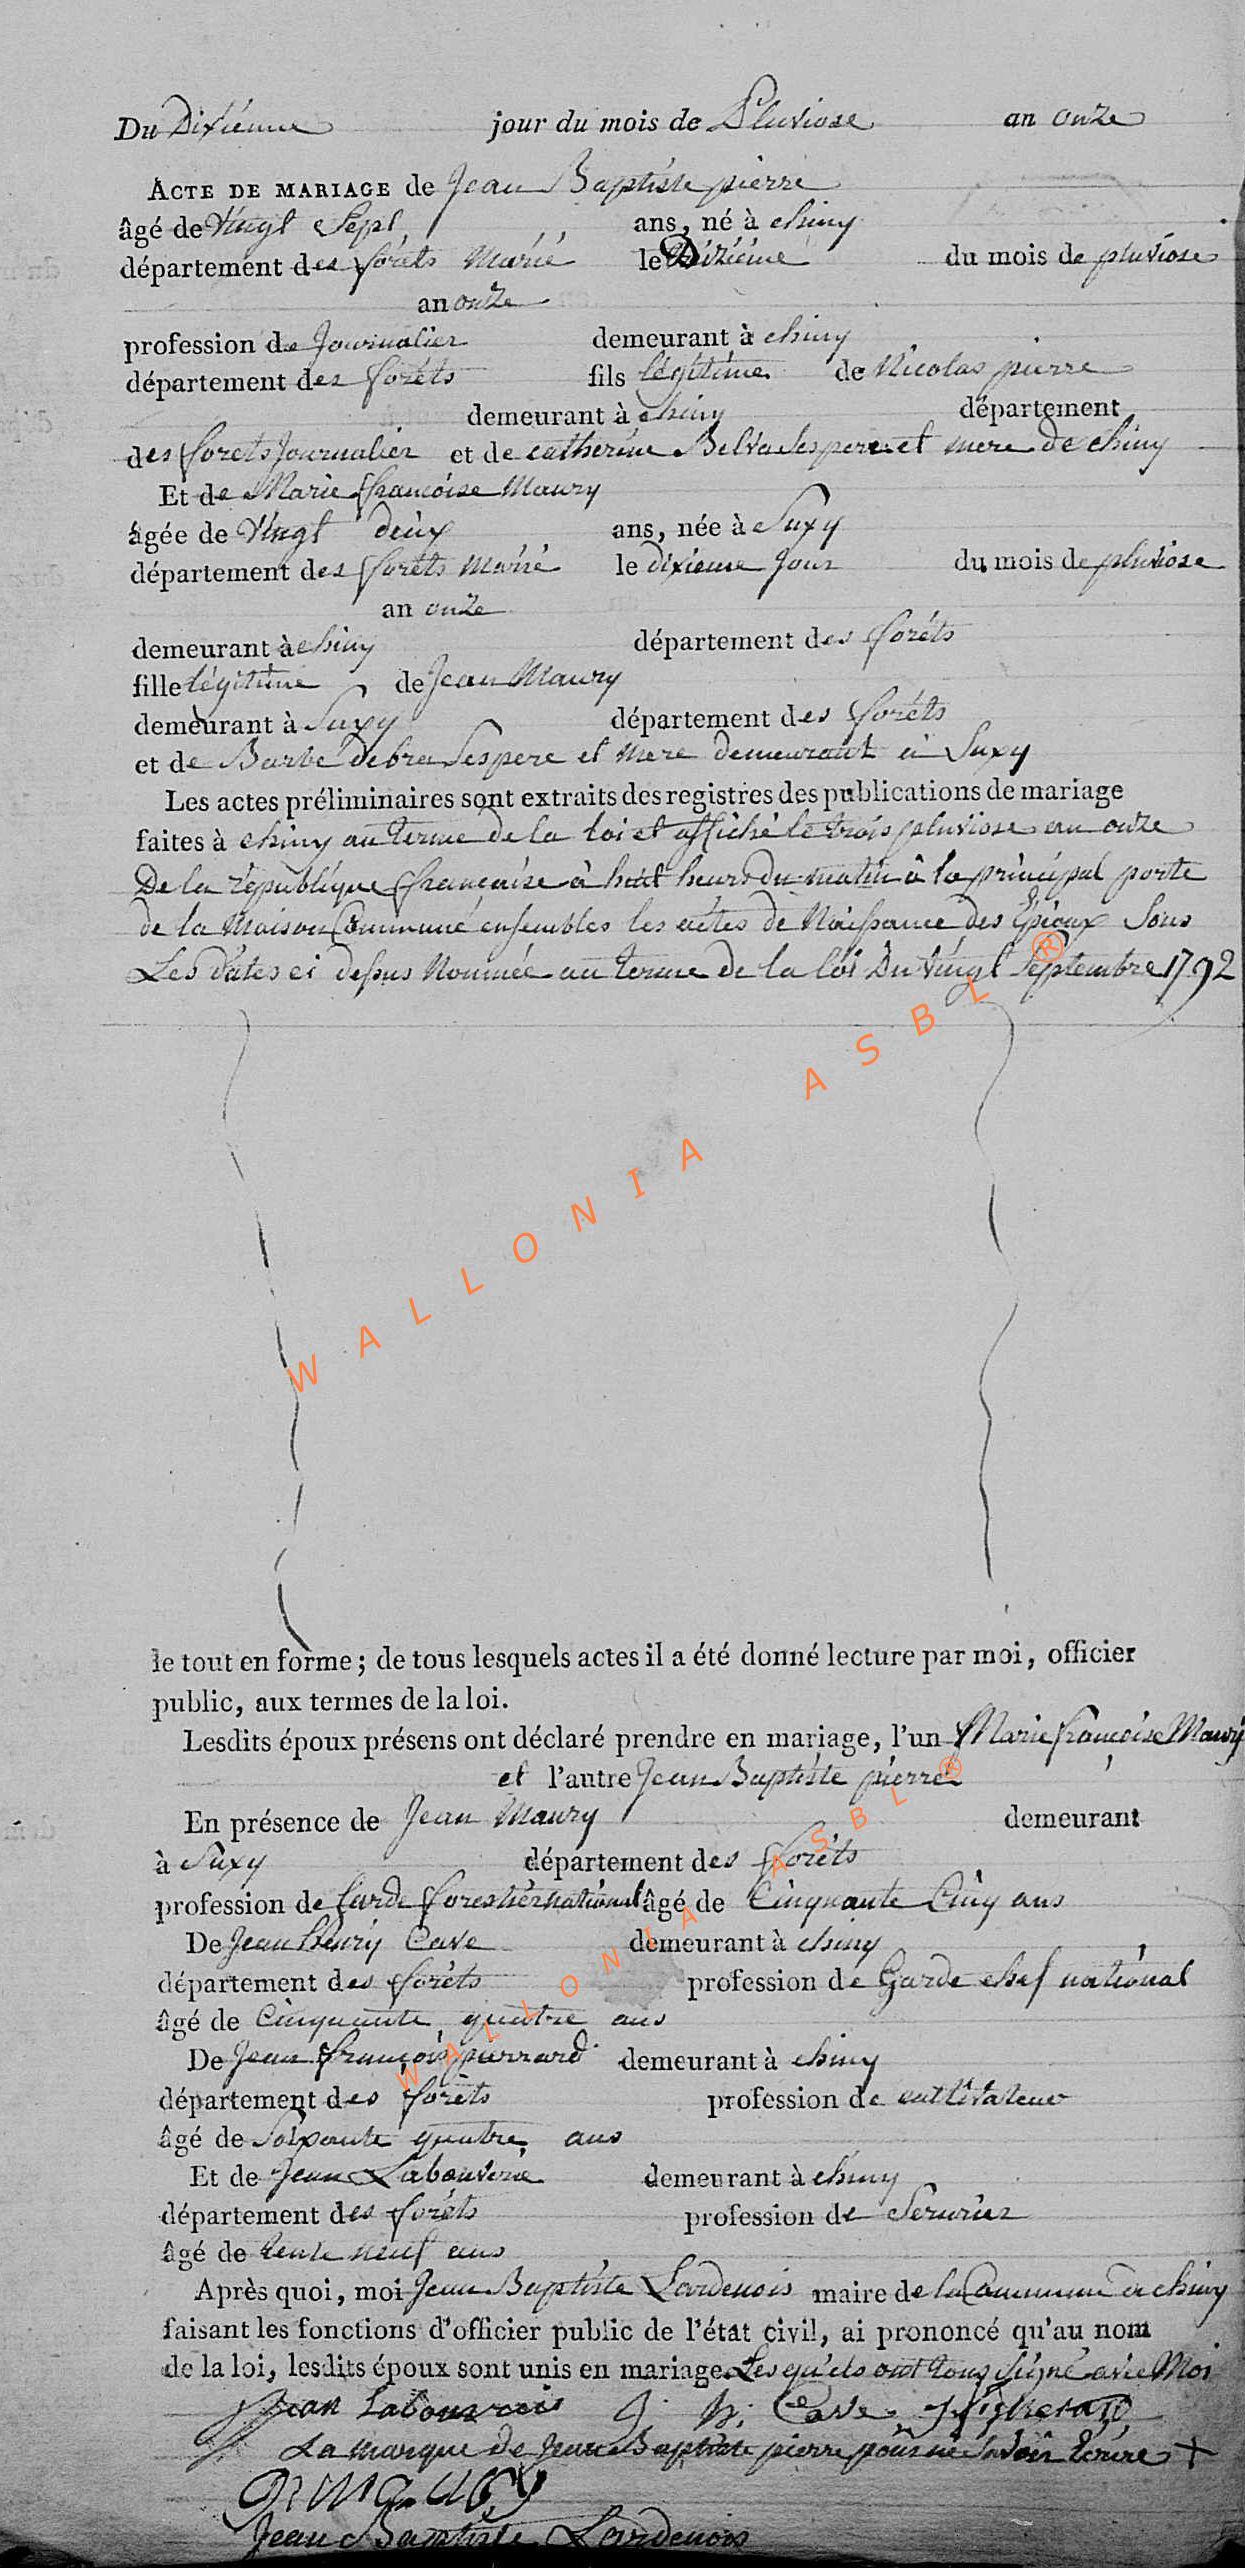 Du Dixiéme jour du mois de Pluviose an onze
ACTE DE MARIAGE de Jean Baptiste pierre
âgé de Vingt Sept ans, né à chiny
département des foréts Marié le Dixiéme du mois de pluviose
an onze
profession de Journalier demeurant à chiny
département des foréts fils légitime de Nicolas pierre
demeurant à chiny département
des forets Journalier et de catherine Belva Ses pere et mere de chiny
Et de Marie françoise Maury
âgée de Vingt deux ans, née à Suxy
département des foréts Marié le dixieme Jour du mois de pluviose
an onze
demeurant à chiny département des foréts
fille légitime de Jean Maury
demeurant à Suxy département des foréts
et de Barbe debra Ses pere et mere demeurant à Suxy
Les actes préliminaires sont extraits des registres des publications de mariage
faites à chiny au terme de la loi et affiché le trois pluviose an onze
De la république française à huit heurs du matin à la principal porte
de la Maison Commune ensembles les actes de Naissance des Epéoux Sous
Les dates ci dessus Nommée au terme de la loi Du vingt Septembre 1792
WALLONIA ASBL ®
le tout en forme; de tous lesquels actes il a été donné lecture par moi, officier
public, aux termes de la loi.
Lesdits époux présens ont déclaré prendre en mariage, l'un Marie françoise Maury
et l'autre Jean Baptiste pierre
En présence de Jean Maury demeurant
à Suxy département des foréts
profession de Garde forestier national âgé de Cinquante Cinq ans
De Jean Henry Cave demeurant à chiny
département des foréts profession de Garde chef national
âgé de Cinquante quatre ans
De Jean françois pierrard demeurant à chiny
département des foréts profession de cultivateur
âgé de Soixante quatre ans
Et de Jean Labouverie demeurant à chiny
département des foréts profession de Serurier
âgé de tente neuf ans
WALLONIA ASBL ®
Après quoi, moi Jean Baptiste Lardenois maire de la Commune de chiny
faisant les fonctions d'officier public de l'état civil, ai prononcé qu'au nom
de la loi, lesdits époux sont unis en mariage. Lesquels ont tous Signé avec Moi
Jean Labouverie J. h. Cave
La marque de Jean Baptiste pierre pour ne Savoir Ecrire +
Jean Baptiste Lardenois